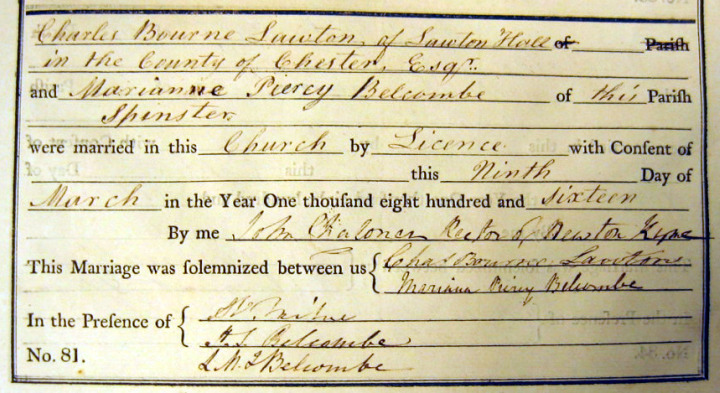 Charles Bourne Lawton, of Lawton Hall of Parish
in the County of Chester, Esqr.
and Marianne Piercy Belcombe of this Parish
Spinster
were married in this Church by Licence with Consent of
this Ninth Day of
March in the Year One thousand eight hundred and sixteen
By me John Chaloner Rector of Newton Kyme
This Marriage was solemnized between us { Chas Bourne Lawton
Mariana Piercy Belcombe
In the Presence of {
Belcombe
No. 81. Belcombe